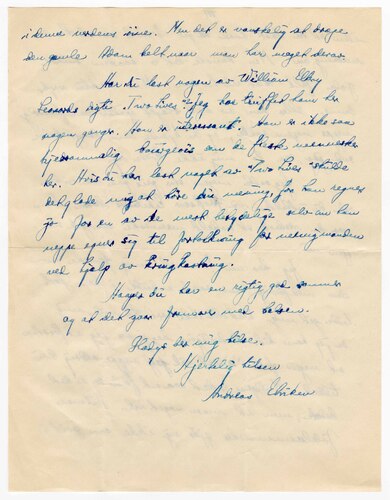 i denne verdens sine. Men det er vanskelig at drage
den gamle Adam helt naar man har meget derav.
Har du læst nogen av William Ellery
Leonards digte. "Two Lives". Jeg har truffed ham her
nogen ganger. Han er interessant. Han er ikke saa
bourgeois som de fleste mennesker
her. Hvis du har læst noget av "Two Lives" skulde
det glæde mig at høre din mening, for han regnes
jo for en av de mest betydelige selv om han
neppe egner sig til for nemmigmanden
ved hjelp av kringkasting.
Haaper du har en rigtig god sommer
og at det gaar fremover med helsen.
Gladys ber mig hilse.
Hjertelig hilsen
Andreas Elviken